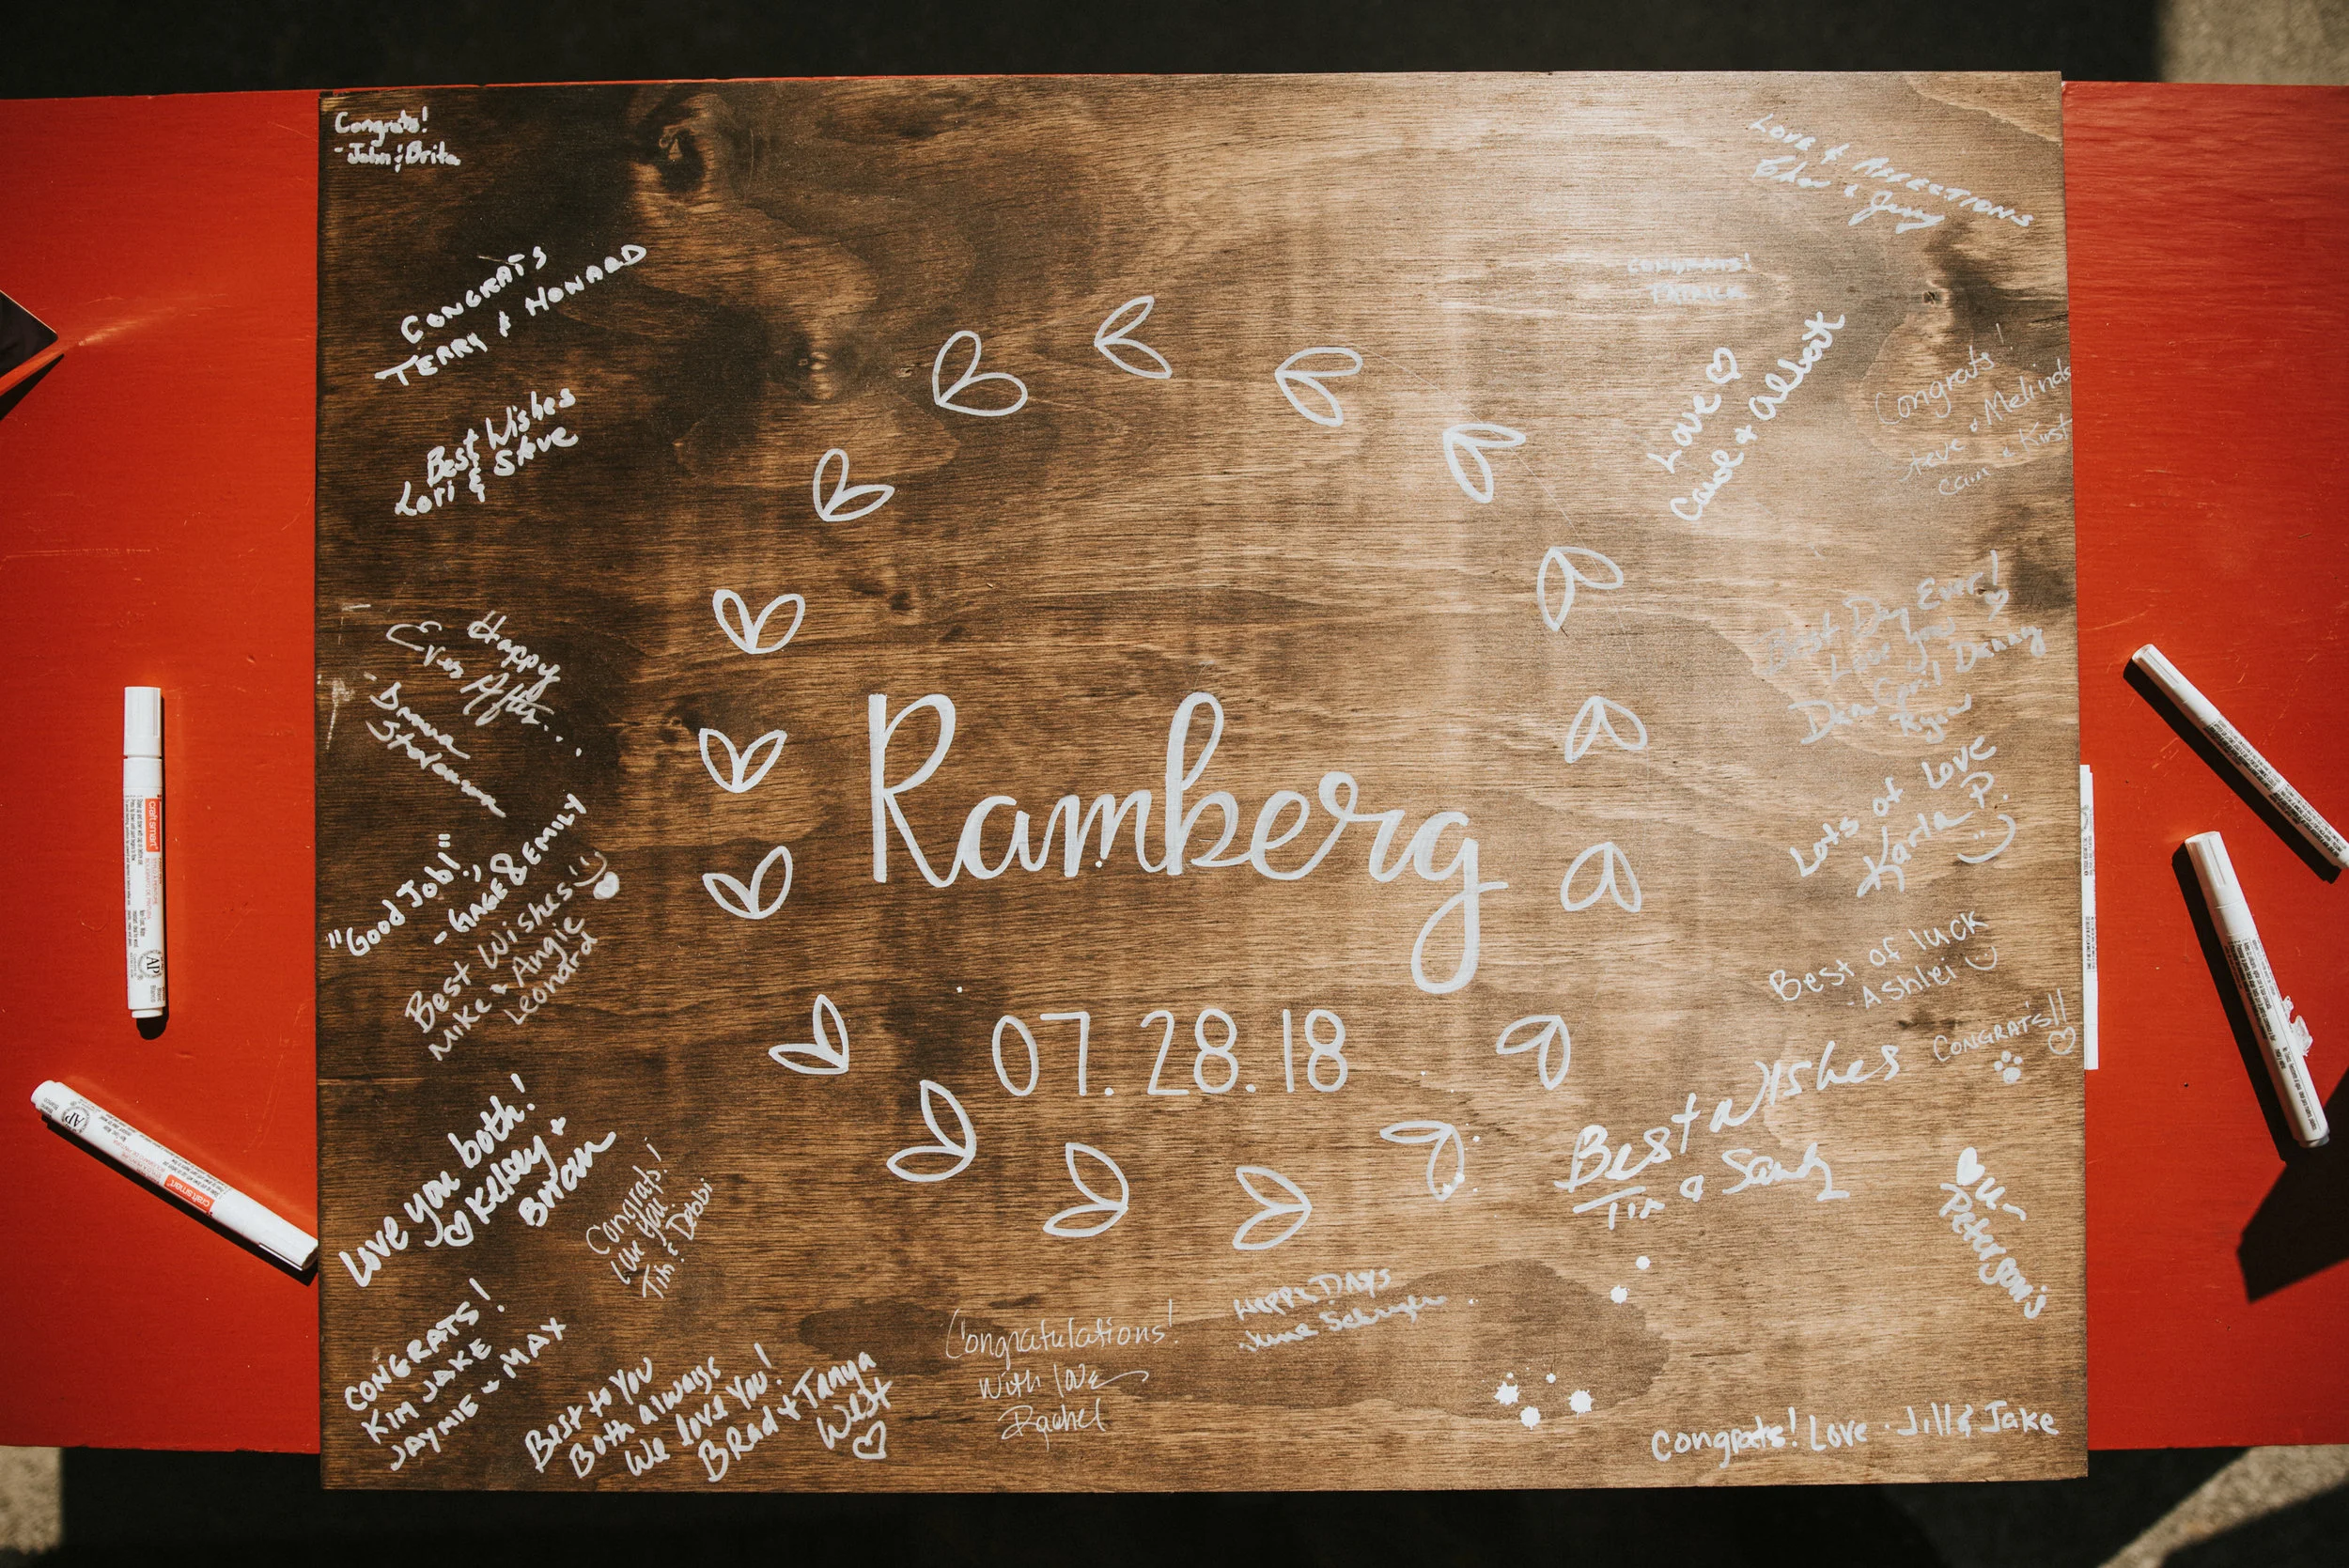 Congrats!
-John & Brita
CONGRATS
TERRY & HOWARD
Best Wishes
Lori & Steve
Happy
Ever After...
"Good Job!",
- GAGE & EMILY
Best Wishes!
Mike & Angie
Leonard
Love you both!
Kelsey &
Brian
Congrats!
Love You!
Tim & Debbi
CONGRATS!
KIM JAKE
JAYMIE & MAX
Best to You
Both always
We love You!
Brad & Tanya
West
Ramberg
07.28.18
Congratulations!
With love
Rachel
Happy Days
June
Love & Affections
CONGRATS!
PATRICK
Love
& Albert
Congrats!
Steve & Melinda
Best Day Ever!
Love you
Dan April Danny
Ryan
Lots of Love
Karla P.
Best of luck
-Ashlei
CONGRATS!!
Best Wishes
Tim & Sandy
U-
Petersons
Congrats! Love - Jill & Jake
craft smart
AP
craft smart
AP